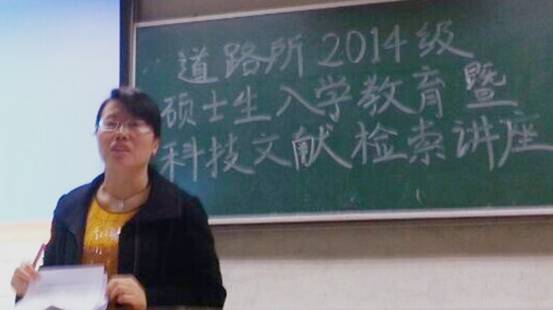 道路所2014级
硕士生入学教育暨
科技文献检索讲座